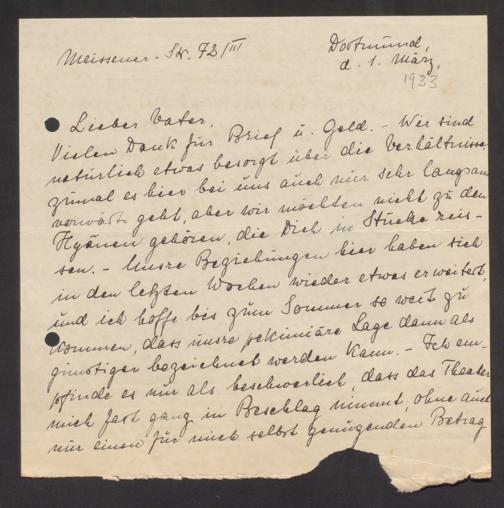 Meissener-Str. 72/III
Dortmund,
d. 1. März,
1933
Lieber Vater.
Vielen Dank für Brief u. Geld. - Wir sind
natürlich etwas besorgt über die Verhältnisse,
zumal es hier bei uns auch nur sehr langsam
vorwärts geht, aber wir möchten nicht zu den
Hyänen gehören, die Dich in Stücke reis-
sen. - Unsre Beziehungen hier haben sich
in den letzten Wochen wieder etwas erweitert,
und ich hoffe bis zum Sommer so weit zu
kommen, dass unsre pekuniäre Lage dann als
günstiger bezeichnet werden kann. - Ich em-
pfinde es nur als beschwerlich, dass das Theater
mich fast ganz in Beschlag nimmt, ohne auch
nur einen für mich selbst genügenden Betrag